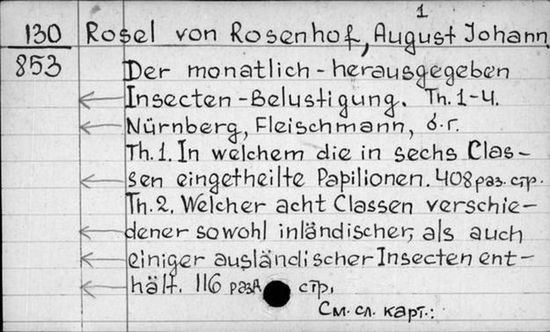 1
130 Rosel von Rosenhof, August Johann
853 Der monatlich-herausgegeben
Insecten-Belustigung. Th. 1-4.
Nürnberg, Fleischmann, б.г.
Th. 1. In welchem die in sechs Clas-
sen eingetheilte Papilionen. 408 раз. стр.
Th. 2. Welcher acht Classen verschie-
dener sowohl inländischer, als auch
einiger ausländischer Insecten ent-
hält. 116 разд стр.
См. сл. карт.: